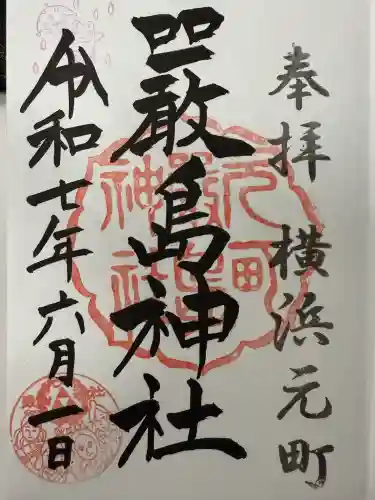 奉拝 横浜元町
嚴島神社
令和七年六月一日
元町
嚴島
神社